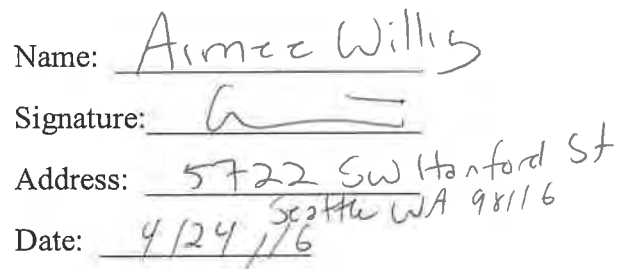 Name: Aimee Willis
Signature:
Address: 5722 SW Hanford St
Seattle WA 98116
Date: 4/24/16